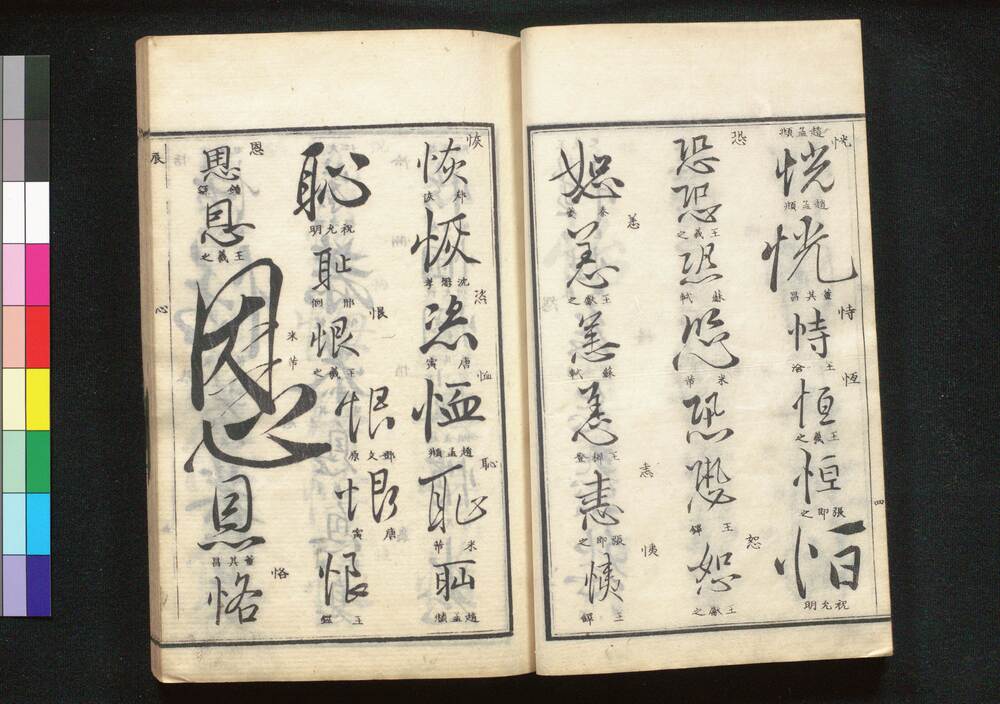 恍
趙孟頫
恍
趙孟頫
恍
董其昌
恃
恃
王洽
恆
恒
王羲之
恒
張即之
恒
祝允明
四
恐
恐
恐
王羲之
恐
蘇軾
恐
米芾
恐
恐
王鐸
恕
恕
王獻之
恕
恙
恙
王獻之
恙
蘇軾
恙
恚
恚
張即之
恞
恞
王鐸
恢
恢
恢
恣
恣
唐寅
恤
恤
趙孟頫
恥
恥
米芾
恥
趙孟頫
恥
祝允明
恥
恨
恨
王羲之
恨
鄧文原
恨
唐寅
恨
王鐸
恩
恩
恩
王羲之
恩
米芾
恩
董其昌
恪
恪
辰
心